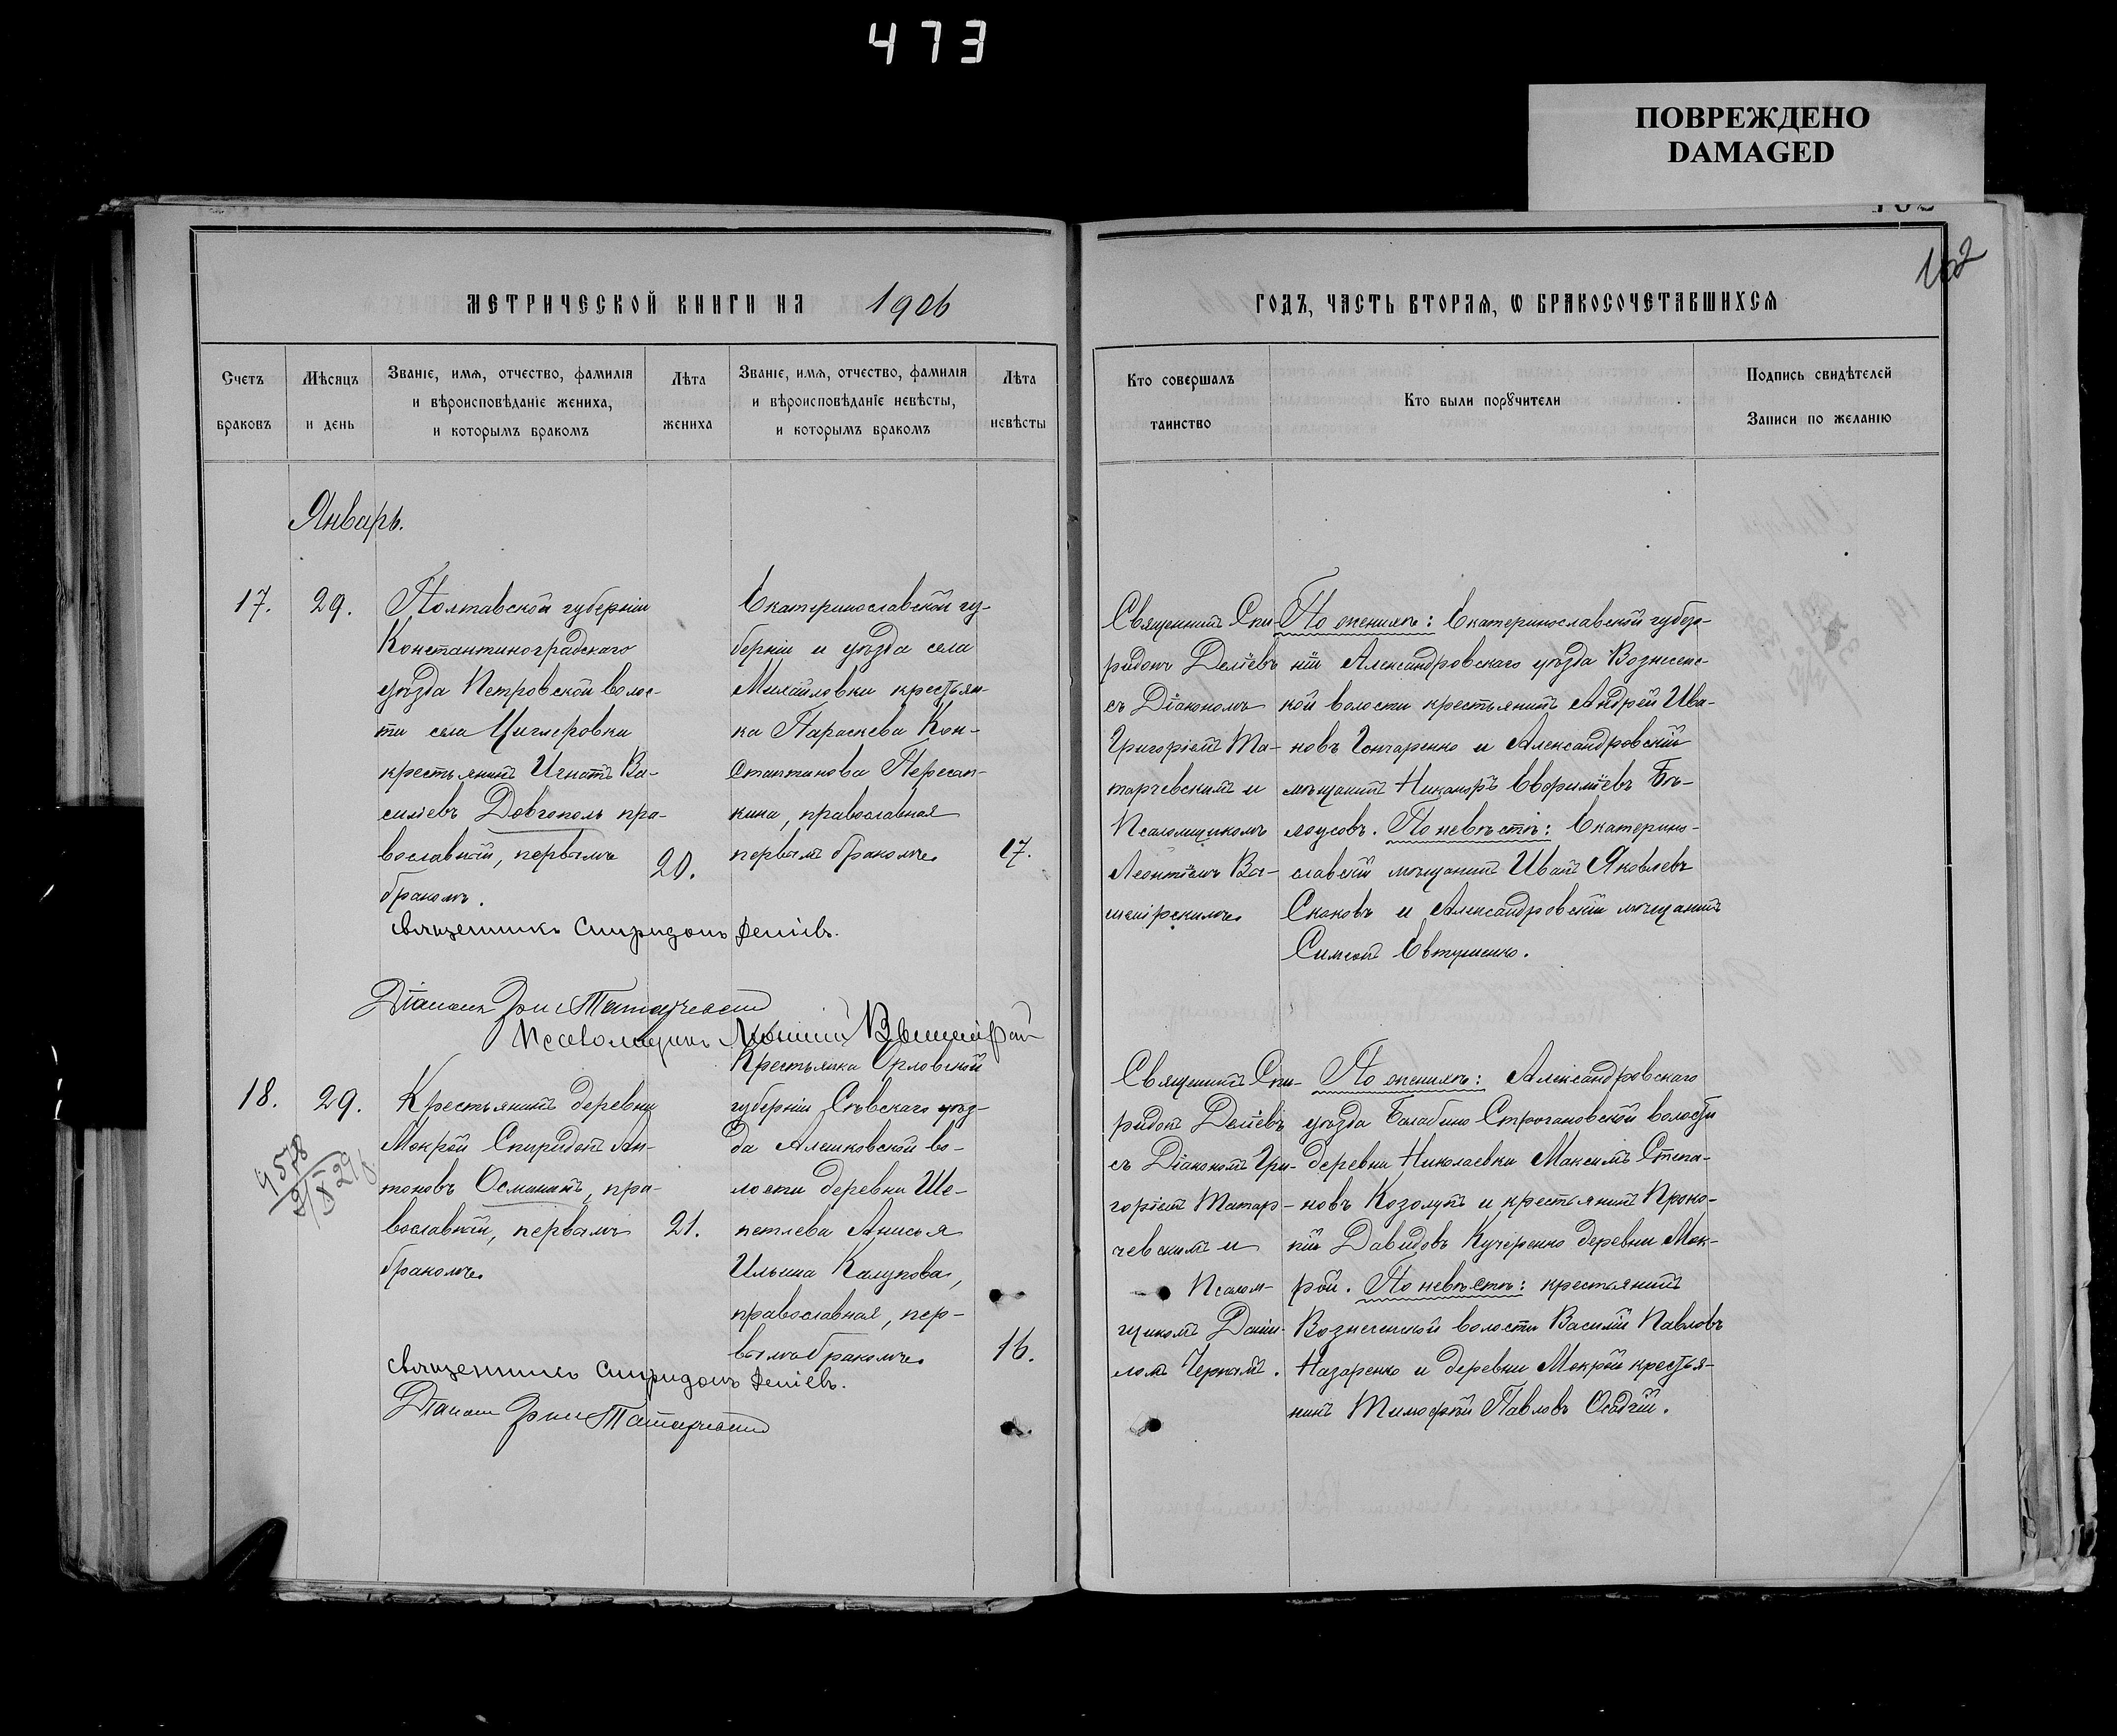 473
ПОВРЕЖДЕНО
DAMAGED
162
МЕТРИЧЕСКОЙ КНИГИ НА 1906
ГОДЪ, ЧАСТЬ ВТОРАЯ, Ѡ БРАКОСОЧЕТАВШИХСѦ
Счетъ
браковъ
Мѣсяцъ
и день
Званіе, имѧ, отчество, фамилія
и вѣроисповѣданіе жениха,
и которымъ бракомъ
Лѣта
жениха
Званіе, имѧ, отчество, фамилія
и вѣроисповѣданіе невѣсты,
и которымъ бракомъ
Лѣта
невѣсты
Кто совершалъ
таинство
Кто были порꙋчители
Подпись свидѣтелей
Записи по желанію
Январь.
17.
29.
Полтавской губерніи
Константиноградскаго
уѣзда Петровской волос-
ти села Циглеровки
крестьянинъ Игнатъ Ва-
силіевъ Довгополъ пра-
вославный, первымъ
бракомъ.
20.
Екатеринославской гу-
берніи и уѣзда села
Михайловки крестьян-
ка Параскева Кон-
стантинова Пересып-
кина, православная
первымъ бракомъ.
17.
Священникъ Спи-
ридонъ Деліевъ
съ Діакономъ
Григоріемъ Та-
тарчевскимъ и
Псаломщикомъ
Леонтіемъ Ва-
По женихѣ: Екатеринославской губер-
ніи Александровскаго уѣзда Вознесенс-
кой волости крестьянинъ Андрей Ива-
новъ Гончаренко и Александровскій
мѣщанинъ Никаноръ Евфиміевъ Бѣ-
лоусовъ. По невѣстѣ: Екатерино-
славскій мѣщанинъ Иванъ Яковлевъ
Скоковъ и Александровскій мѣщанинъ
Симеонъ Евтушенко.
Священникъ Спиридонъ Деліевъ.
Діаконъ Григ. Татарчевскій
Псаломщикъ
18.
29.
4578
Крестьянинъ деревни
Мокрой Спиридонъ Ан-
тоновъ Османатъ, пра-
вославный, первымъ
бракомъ.
21.
Крестьянка Орловской
губерніи Сѣвскаго уѣз-
да Алешковской во-
лости деревни Ше-
петлева Анисья
Ильина Калупова,
православная, пер-
вымъ бракомъ.
16.
Священникъ Спи-
ридонъ Деліевъ
съ Діакономъ Гри-
горіемъ Татар-
чевскимъ и
Псалом-
щикомъ Дани-
ломъ Чернымъ.
По женихѣ: Александровскаго
уѣзда Балабино Строгановской волости
деревни Николаевки Максимъ Степа-
новъ Козолупъ и крестьянинъ Проко-
пій Давидовъ Кучеренко деревни Мок-
рой. По невѣстѣ: крестьянинъ
Вознесенской волости Василій Павловъ
Назаренко и деревни Мокрой крестья-
нинъ Тимофей Павловъ Осадчій.
Священникъ Спиридонъ Деліевъ.
Діаконъ Григ. Татарчевскій